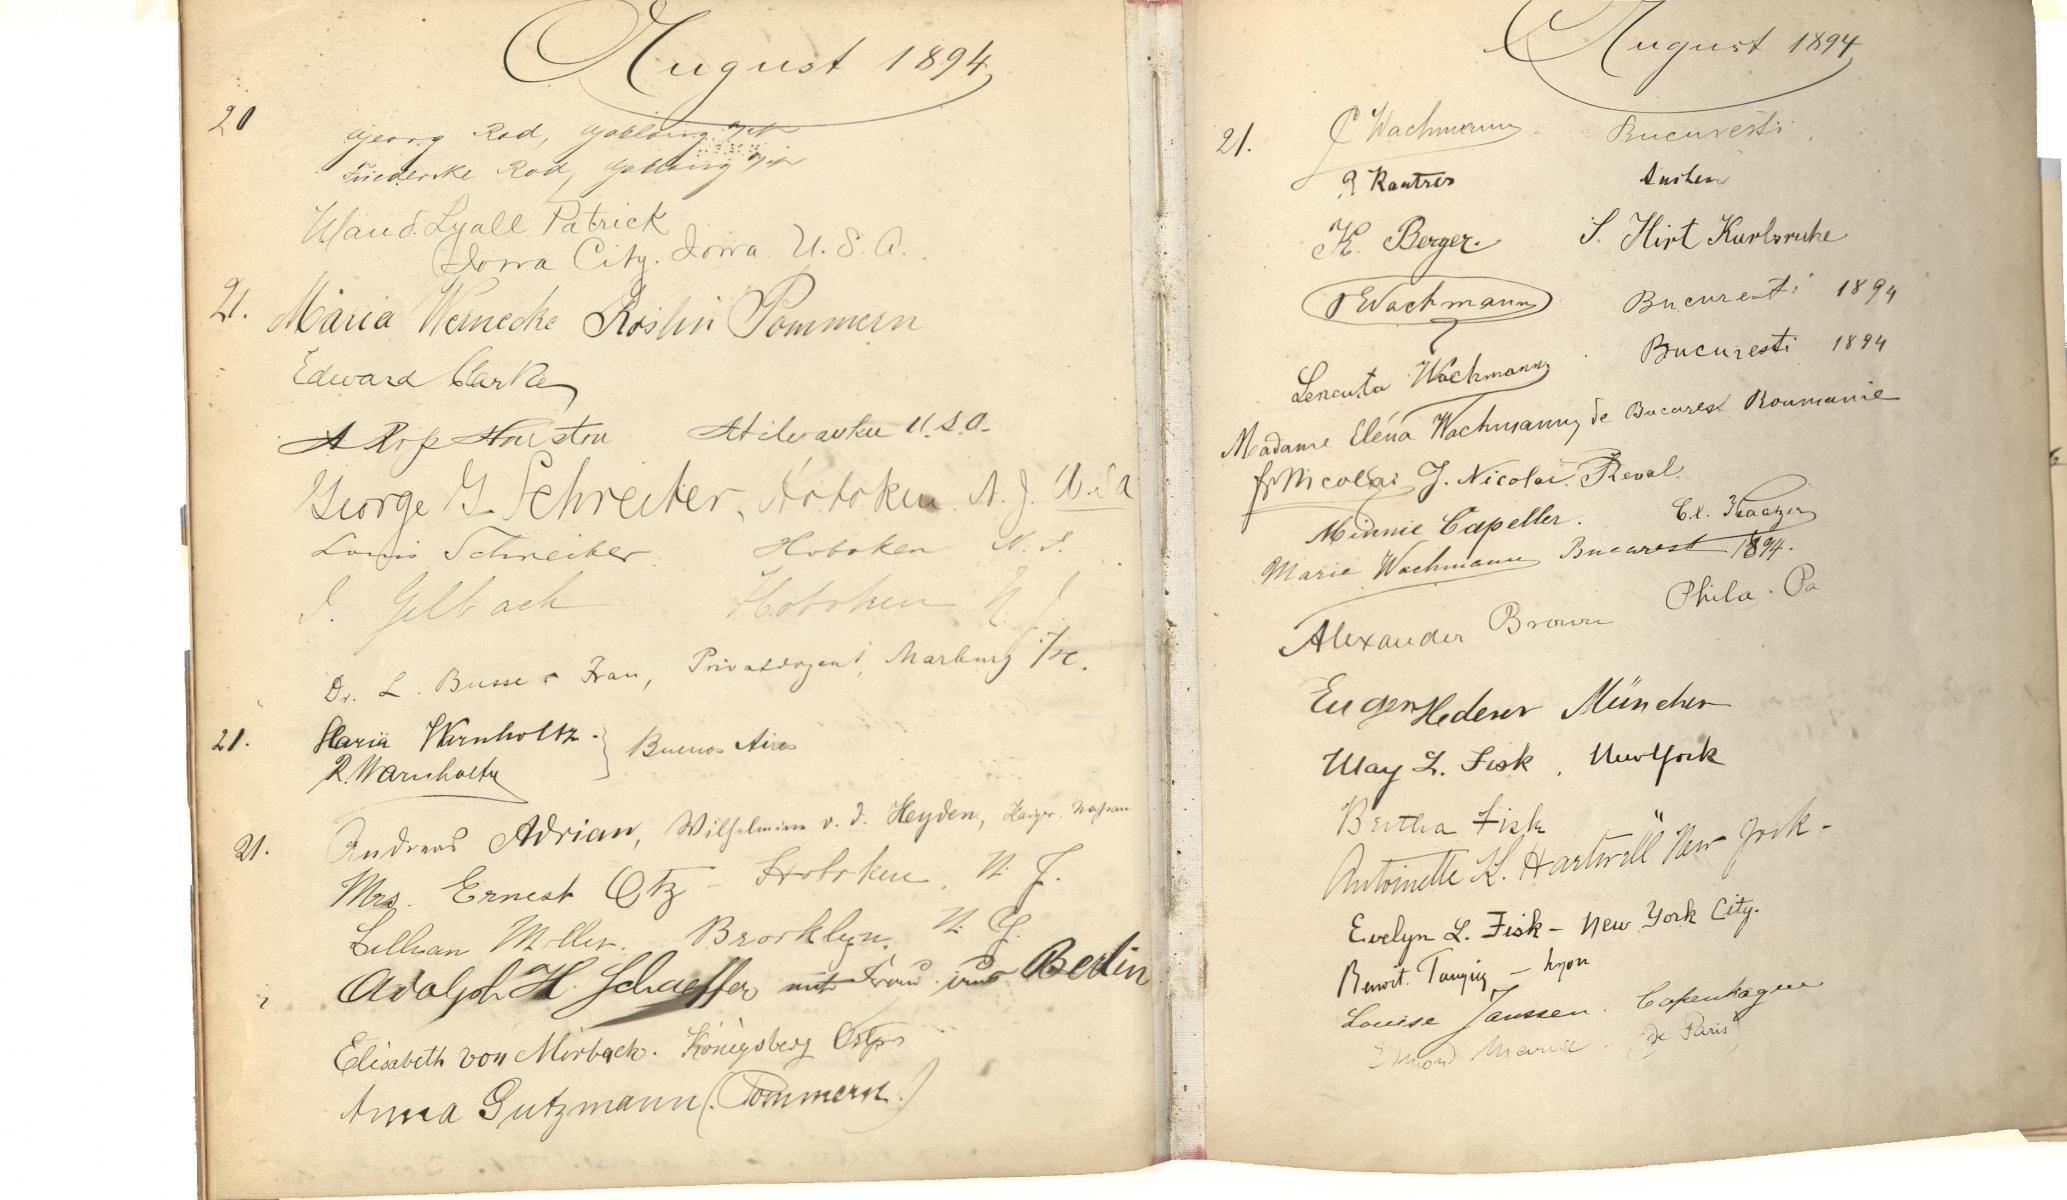 August 1894
20
Georg Rad,
Friederike Rad,
Maud Lyall Patrick
Iowa City. Iowa U.S.A.
21. Maria Wernecke Köslin Pommern
Edward Clarke
U.S.A.
George G. Schreiber, Hoboken N.J. U.S.A
Louis Schreiber Hoboken N.J.
J. Gelbach Hoboken N.J.
Dr. L. Busse u. Frau, Privatdozent, Marburg
21. Maria Warnholtz
R. Warnholtz Buenos Aires
21. Andreas Adrian, Wilhelmine v. d. Heyden, Haiger. Nassau
Mrs. Ernest Otz - Hoboken, N.J.
Lillian Moller. Brooklyn, N.Y.
Adolph H. Schaeffer mit Frau Berlin
Elisabeth von Mirbach. Königsberg Ostpr
Anna Gutzmann (Pommern.)
August 1894
21. C Wachmann Bucuresti
K. Berger. S. Hirt Karlsruhe
Wachmann Bucuresti 1894
Lencuta Wachmann Bucuresti 1894
Madame Eléna Wachmann de Bucarest Roumanie
J. Nicolai. Reval
Minnie Capeller.
Marie Wachmann Bucarest 1894.
Alexander Brown Phila. Pa
Eugen Hederer München
May L. Fisk, New York
Bertha Fisk "
Antoinette K. Hartwell New York-
Evelyn L. Fisk - New York City.
Benoit - Lyon
Louise Janssen. Copenhagen
(de Paris)